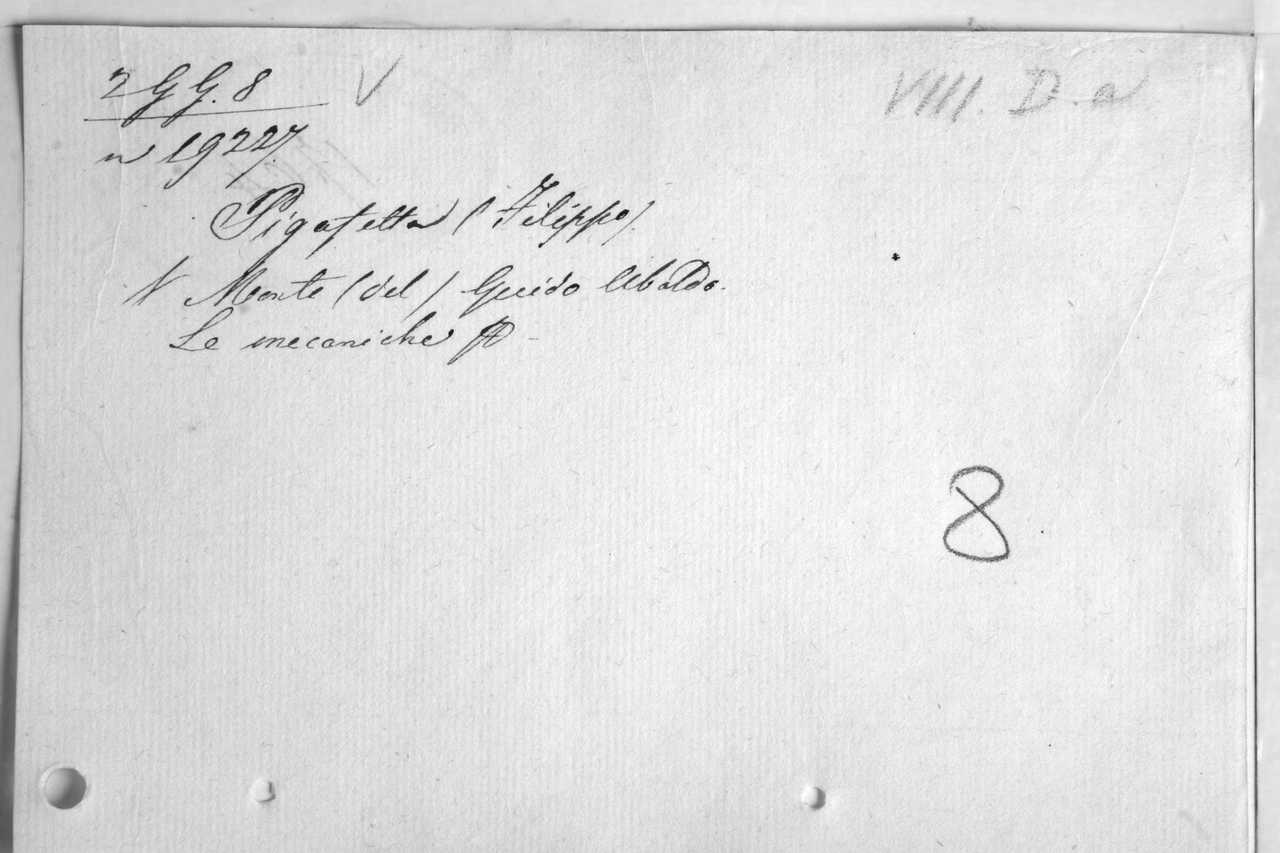 2 G G. 8 V VIII. D. a
n 19227.
Pigafetta (Filippo).
V Monte (del) Guido Ubaldo.
Le mecaniche
8